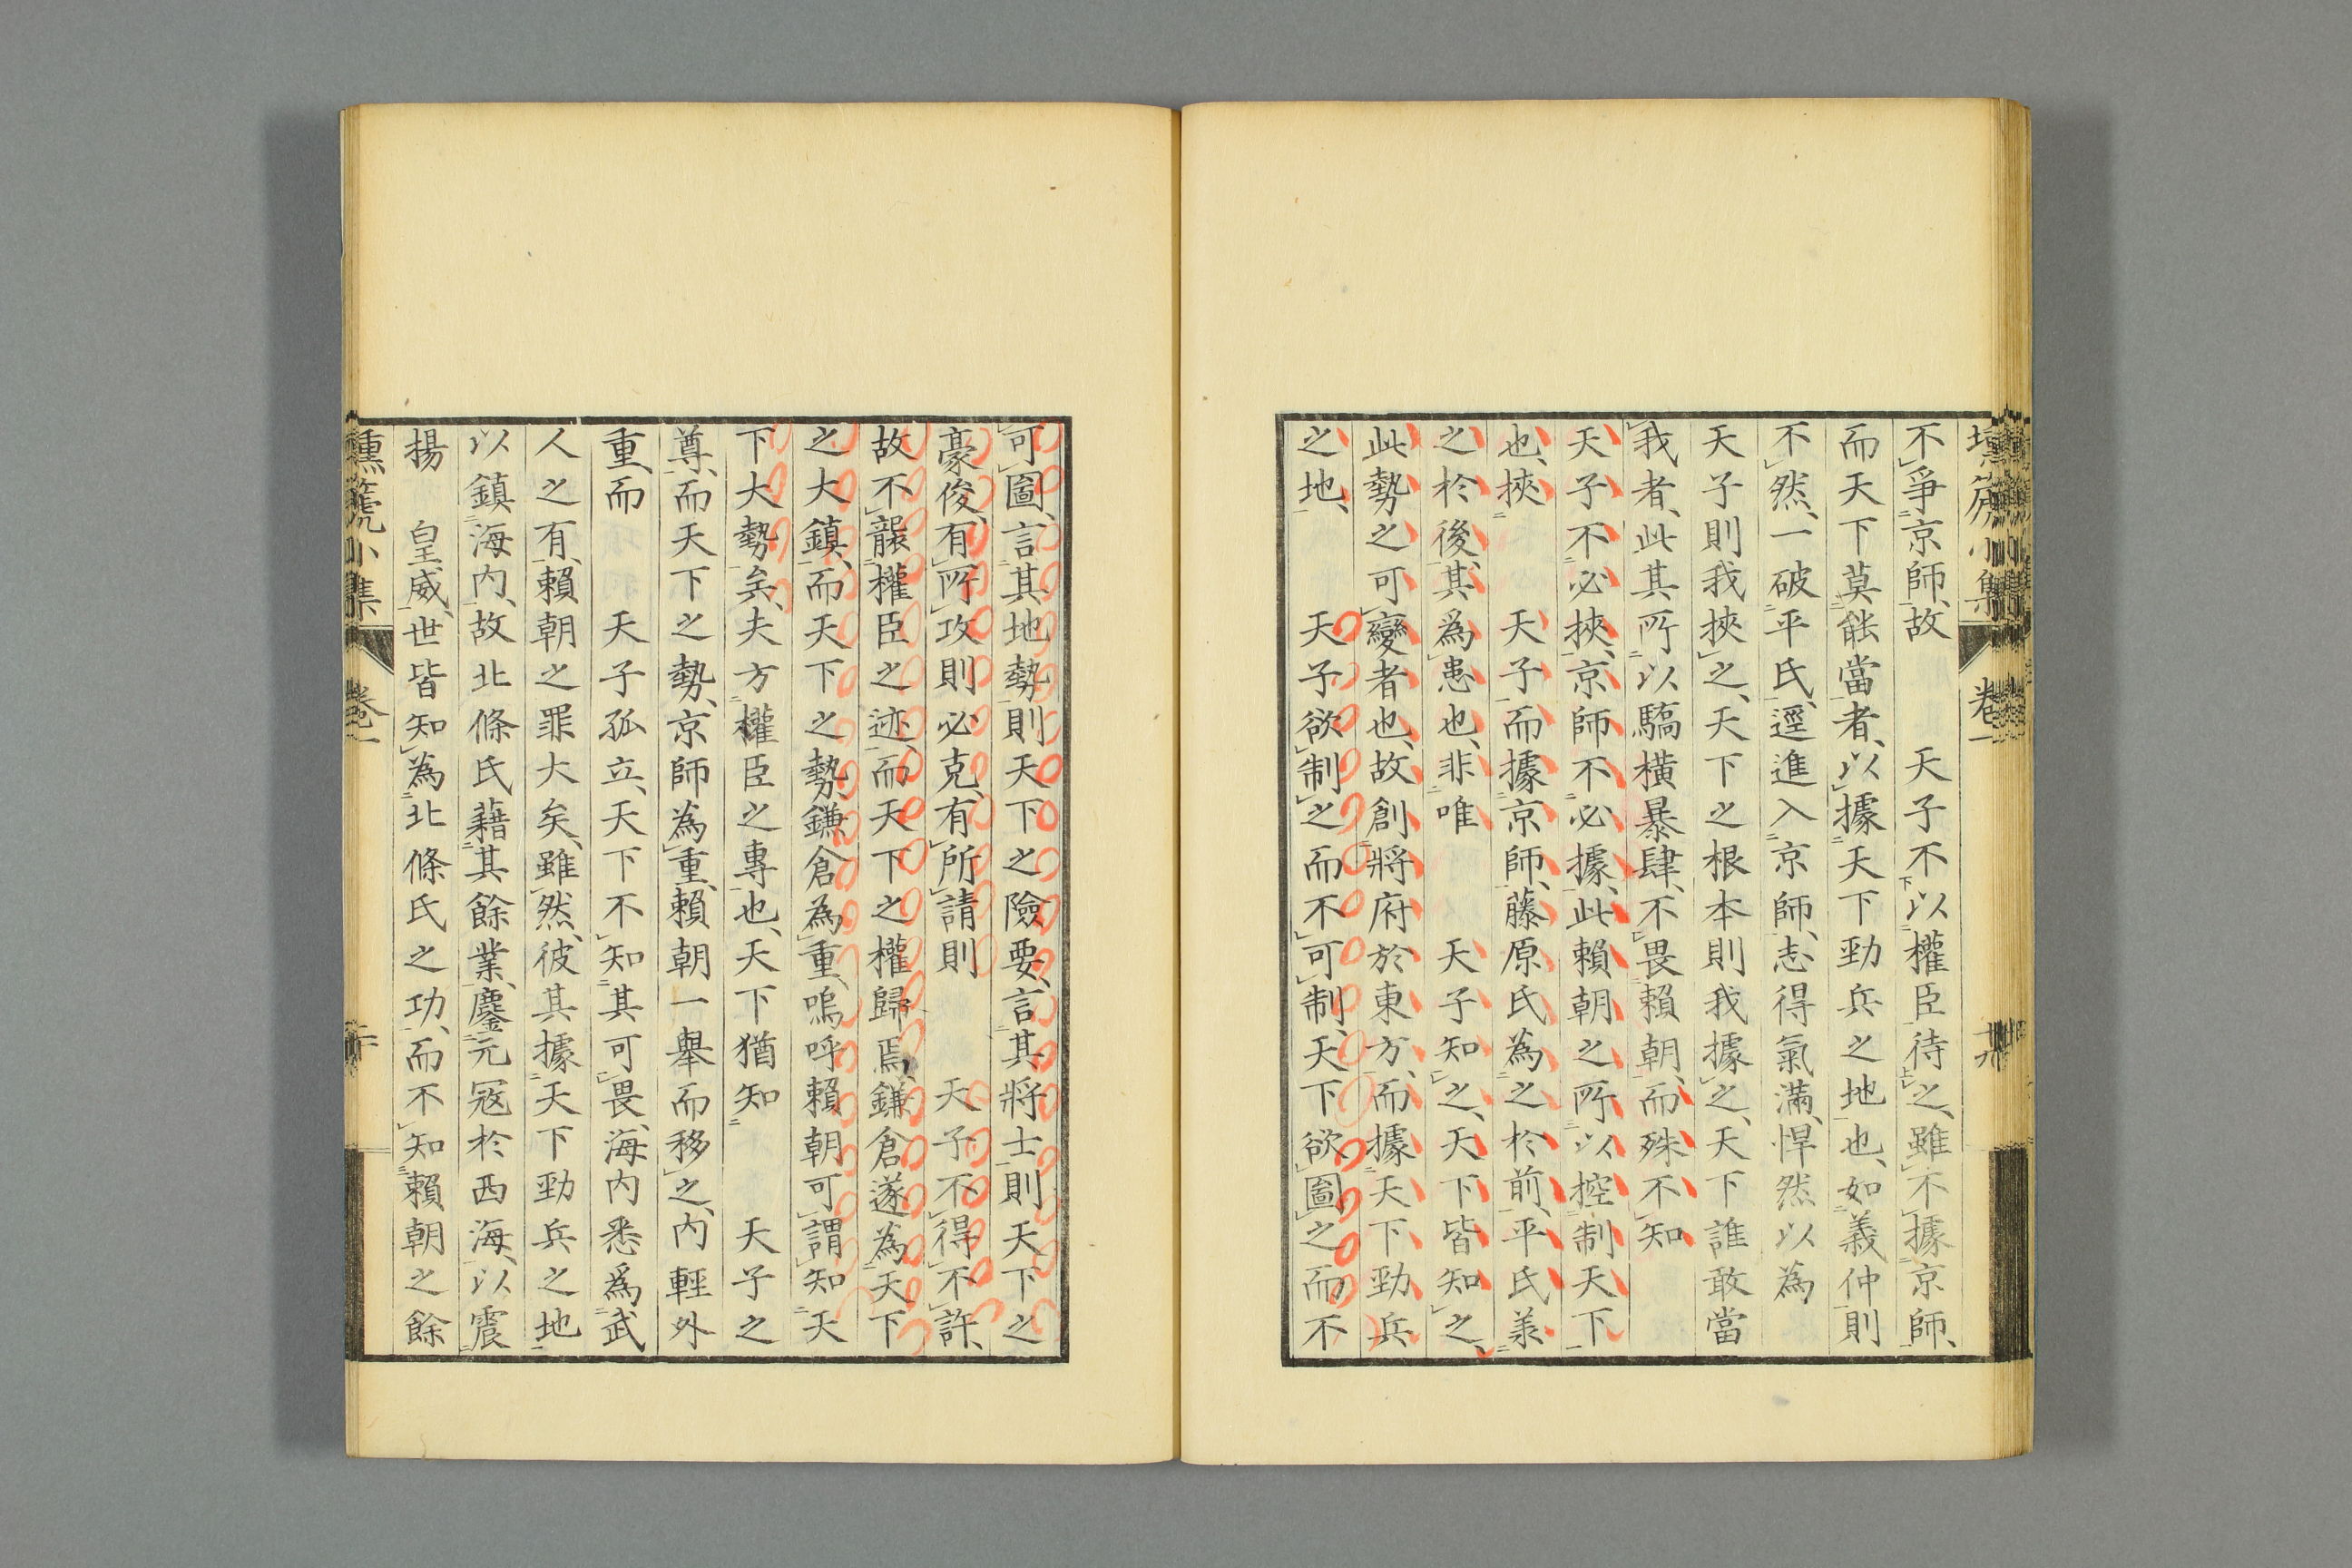 壎篪小集 卷一 十九
不爭京師、故 天子不以權臣待之、雖不據京師、
而天下莫能當者、以據天下勁兵之地也、如義仲則
不然、一破平氏、逕進入京師、志得氣滿、悍然以為
天子則我挾之、天下之根本則我據之、天下誰敢當
我者、此其所以驕橫暴肆、不畏賴朝、而殊不知
天子不必挾、京師不必據、此賴朝之所以控制天下
也、挾 天子而據京師、藤原氏為之於前、平氏羕
之於後、其為患也、非唯 天子知之、天下皆知之、
此勢之可變者也、故創將府於東方、而據天下勁兵
之地、 天子欲制之而不可制、天下欲圖之而不
可圖、言其地勢則天下之險要、言其將士則天下之
豪俊、有所攻則必克、有所請則 天子不得不許、
故不襲權臣之迹、而天下之權歸焉、鎌倉遂為天下
之大鎮、而天下之勢、鎌倉為重、嗚呼賴朝可謂知天
下大勢矣、夫方權臣之專也、天下猶知 天子之
尊、而天下之勢、京師為重、賴朝一舉而移之、內輕外
重、而 天子孤立、天下不知其可畏、海內悉爲武
人之有、賴朝之罪大矣、雖然、彼其據天下勁兵之地
以鎮海內、故北條氏藉其餘業、鏖元寇於西海、以震
揚 皇威、世皆知為北條氏之功、而不知賴朝之餘
壎篪小集 卷一 二十